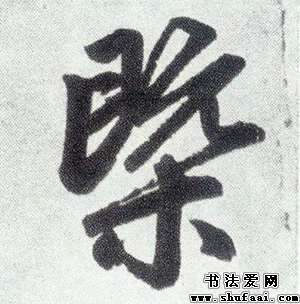 槩
书法爱网
www.shufaai.com